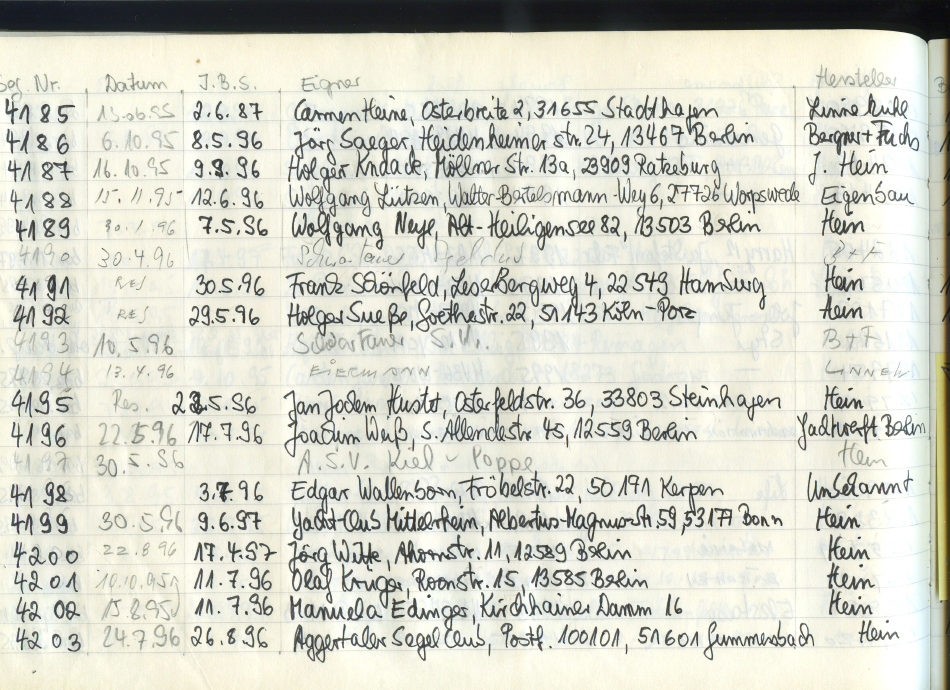 Seg. Nr. Datum J.B.S. Eigner Hersteller
4185 13.06.95 2.6.87 Carmen Heine, Osterbreite 2, 31655 Stadthagen
4186 6.10.95 8.5.96 Jörg Saeger, Heidenheimer Str. 24, 13467 Berlin Bergner + Fuchs
4187 16.10.95 9.8.96 Holger Knaack, Möllner Str. 13a, 23909 Ratzeburg J. Hein
4188 15.11.95 12.6.96 Wolfgang Lützen, Walter-Bertelsmann-Weg 6, 27726 Worpswede Eigenbau
4189 30.1.96 7.5.96 Wolfgang Neye, Alt-Heiligensee 82, 13503 Berlin Hein
4190 30.4.96 B+F
4191 RES 30.5.96 Frank Schönfeld, Leserbergweg 4, 22549 Hamburg Hein
4192 RES 29.5.96 Holger Sueße, Goethestr. 22, 51143 Köln-Porz Hein
4193 10.5.96 B+F
4194 17.4.96 EIERMANN
4195 Res. 5.96 Jan Jochem Hustet, Osterfeldstr. 36, 33803 Steinhagen Hein
4196 22.5.96 17.7.96 Joachim Weiß, S. Allendestr. 45, 12559 Berlin Yachtwerft Berlin
4197 30.5.96 A.S.V. Kiel - Poppe Hein
4198 3.7.96 Edgar Wallenborn, Fröbelstr. 22, 50191 Kerpen Unbekannt
4199 30.5.96 9.6.97 Yacht-Club Mittelrhein, Albertus-Magnus-Str. 59, 53177 Bonn Hein
4200 22.8.96 17.4.97 Jörg Witte, Ahornstr. 11, 12589 Berlin Hein
4201 10.10.95 11.7.96 Olaf Krüger, Roonstr. 15, 13585 Berlin Hein
4202 15.8.95 11.7.96 Manuela Edinger, Kirchhainer Damm 16 Hein
4203 24.7.96 26.8.96 Aggertaler Segel Club, Postf. 100101, 51601 Gummersbach Hein